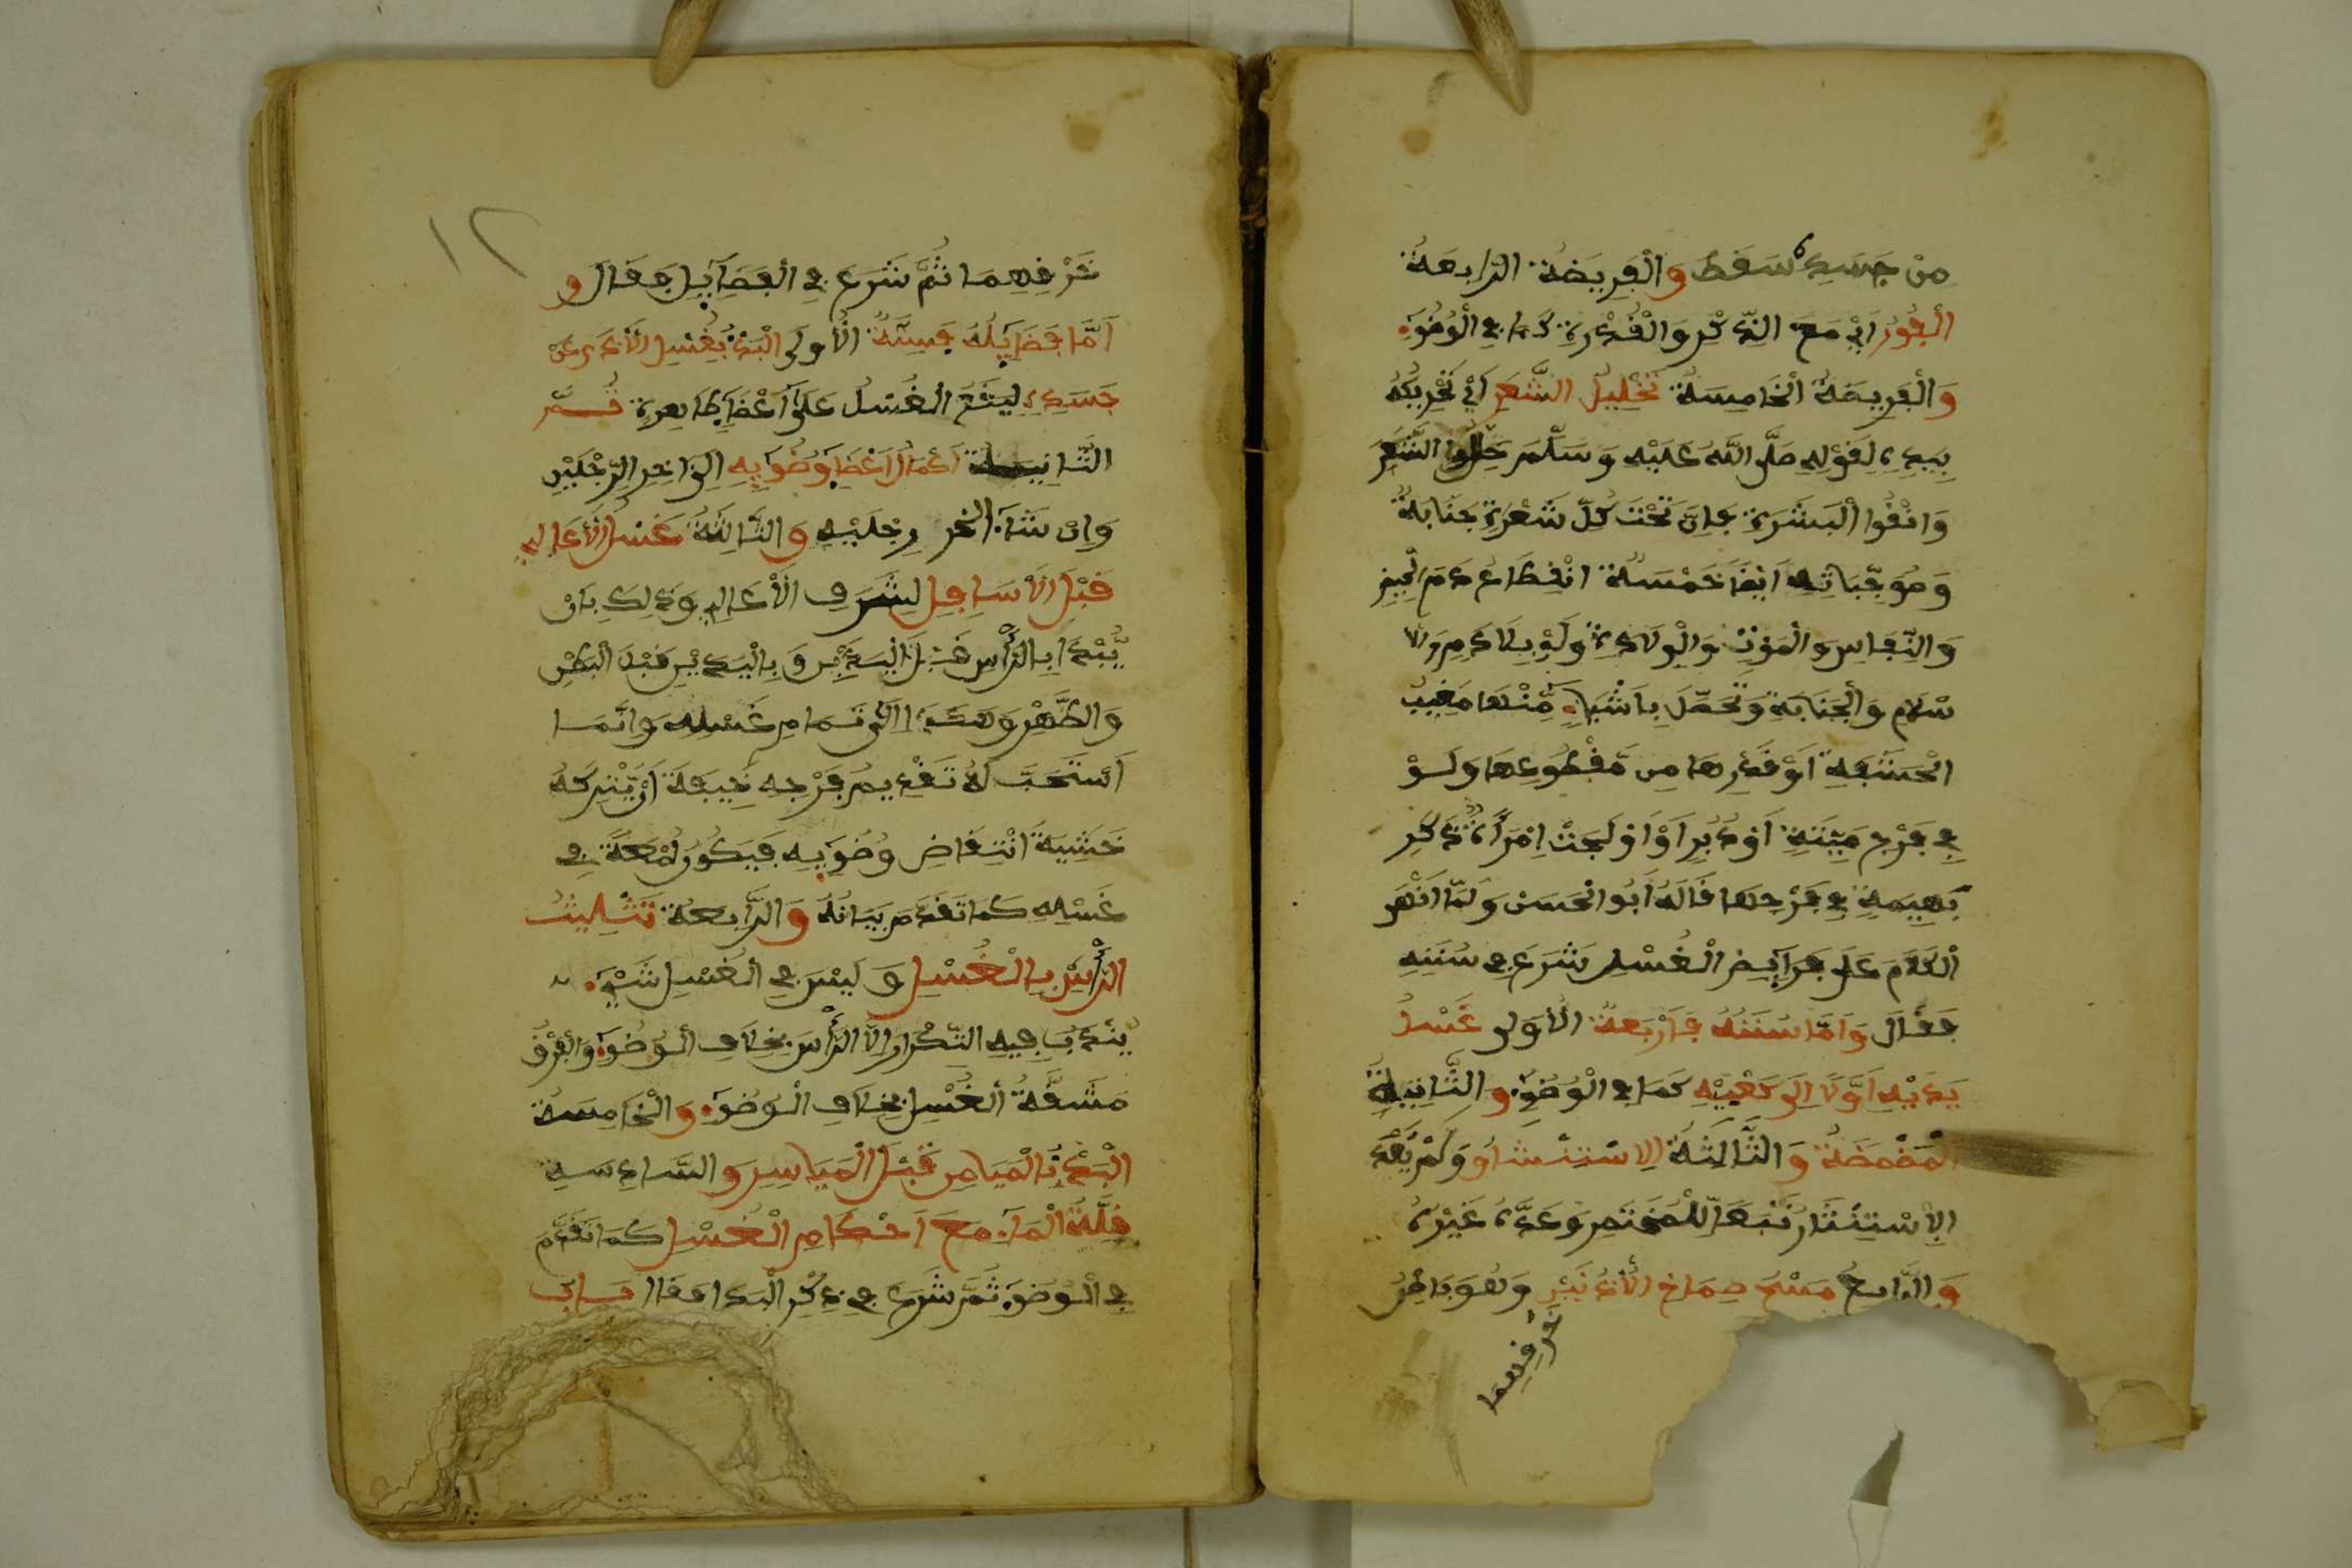 من جسده سقط والفريضة الرابعة
الفور اي مع الذكر والقدرة كما في الوضوء
والفريضة الخامسة تخليل الشعر اي تحريكه
بيده لقوله صلى الله عليه وسلم خللوا الشعر
وانقوا البشرة فان تحت كل شعرة جنابة
وموجباته ايضا خمسة انقطاع دم الحيض
والنفاس والموت والولادة ولو بلا دم والا
سلام والجنابة وتحصل باشياء منها مغيب
الحشفة او قدرها من مقطوعها ولو
في فرج ميتة او دبر او اولجت امراة ذكر
بهيمة في فرجها قاله ابو الحسن ولما انهى
الكلام على فرايض الغسل شرع في سننه
فقال واما سننه فاربعة الاولى غسل
يديه اولا الى كعيه كما في الوضوء والثانية
المضمضة والثالثة الاستنشاق ولم يعد
الاستنثار تبعا للمختصر وعده غيره
والرابع مسح صماخ الاذنين وهو باطن
خرفيهما
١٢
خرفيهما ثم شرع في الفضايل فقال و
اما فضايله فستة الاولى البدء بغسل الاذى عن
جسده ليقع الغسل على اعضاء طاهرة ثم
الثانية اكمال اعضا وضويه الى اخر الرجلين
وان شاء اخر رجليه والثالثة غسل الاعالي
قبل الاسافل لشرف الاعالي وذلك بان
يبدا بالراس قبل اليدين وباليدين قبل البطن
والظهر وهكذا الى تمام غسله وانما
استحب له تقديم فرجه خيفة ان يتركه
خشية انتقاض وضويه فيكون لمعة في
غسله كما تقدم بيانه والرابعة تثليث
الراس بالغسل وليس في الغسل شيء
يندب فيه التكرار الا الراس بخلاف الوضوء والفرق
مشقة الغسل بخلاف الوضوء والخامسة
البدء بالميامن قبل المياسر والسادسة
قلة الماء مع احكام الغسل كما تقدم
في الوضوء ثم شرع في ذكر البدا فقال باب